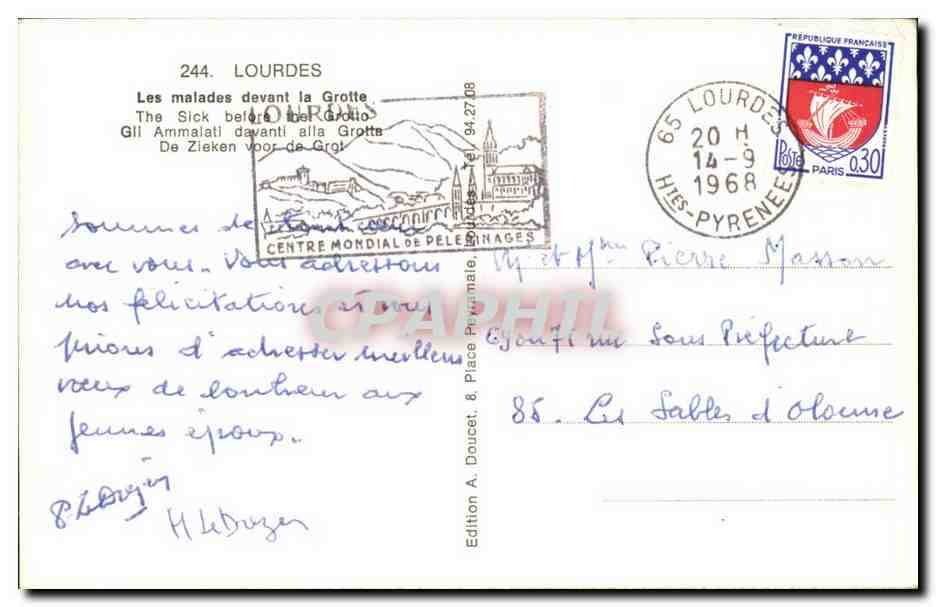 244. LOURDES
Les malades devant la Grotte
The Sick before the Grotto
Gli Ammalati davanti alla Grotta
De Zieken voor de Grot
LOURDES
CENTRE MONDIAL DE PELERINAGES
65 LOURDES
20 H
14-9
1968
HTES-PYRENEES
RÉPUBLIQUE FRANÇAISE
POSTE
0,30
PARIS
Sommes de tout cœur
avec vous. Vous adressons
nos félicitations et vous
prions d'adresser meilleurs
vœux de bonheur aux
jeunes époux.
P LeDrezen
H LeDrezen
Edition A. Doucet, 8, Place Peyramale, Lourdes - Tél. 94.27.08
M et Mme Pierre Masson
rue Sous Préfecture
85. Les Sables d'Olonne
CPAPHIL